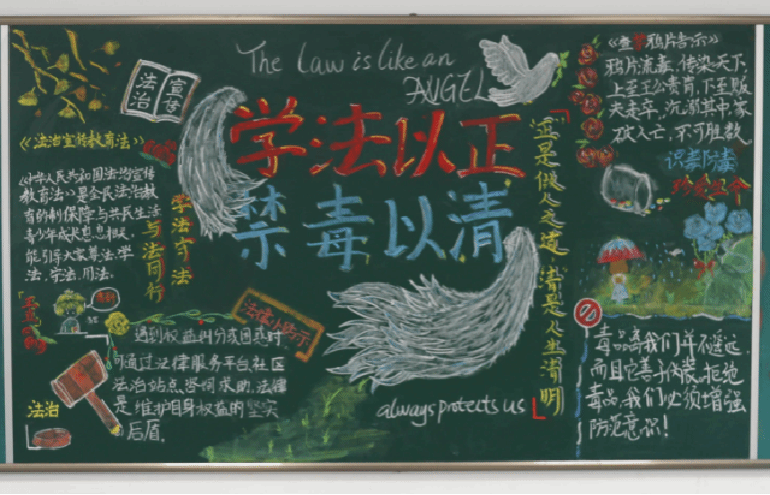 The Law is like an
ANGEL
学法以正
禁毒以清
法治
宣传
《法治宣传教育法》
《中华人民共和国法治宣传
教育法》是全民法治教
育的制保障与共民生活
青少年成长息息相关，
能引导大家尊法、学
法，守法，用法。
学法守法
与法同行
遇到权益纠分或困惑时
可通过法律服务平台社区
法治站点咨询求助，法律
是维护自身权益的坚实
后盾。
法治
always protects us
正是做人之道，清是人生清明
《查禁鸦片告示》
鸦片流毒，传染天下
上至王公贵胄，下至贩
夫走卒，沉溺其中，家
破人亡，不可胜数
识毒防毒
珍爱生命
毒品离我们并不遥远，
而且它善于伪装，拒绝
毒品，我们必须增强
防范意识！